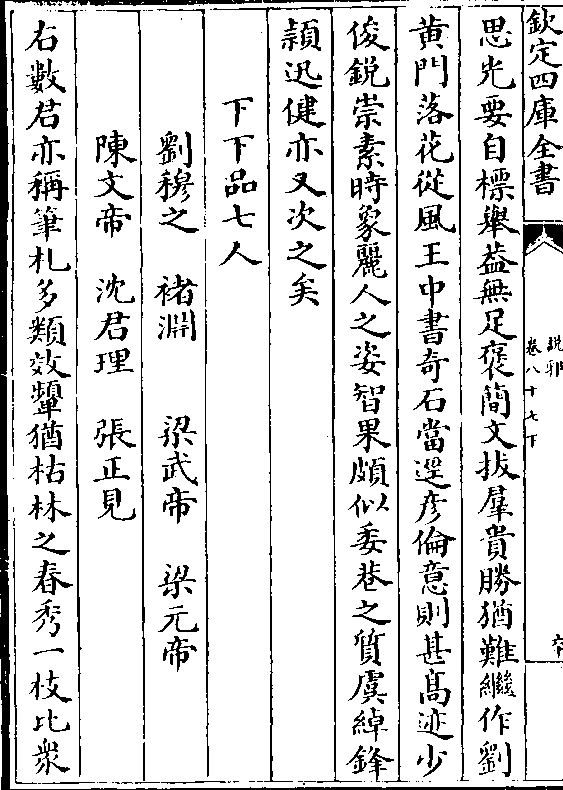 欽定四庫全書
說郛
卷八十七下
思光要自標舉益無足褒簡文拔羣貴勝猶難繼作劉
黄門落花從風王中書奇石當逕彦倫意則甚髙迹少
俊鋭崇素時象麗人之姿智果頗似委巷之質虞綽鋒
頴迅健亦又次之矣
下下品七人
劉穆之 褚淵 梁武帝 梁元帝
陳文帝 沈君理 張正見
右數君亦稱筆札多類效顰猶枯林之春秀一枝比衆